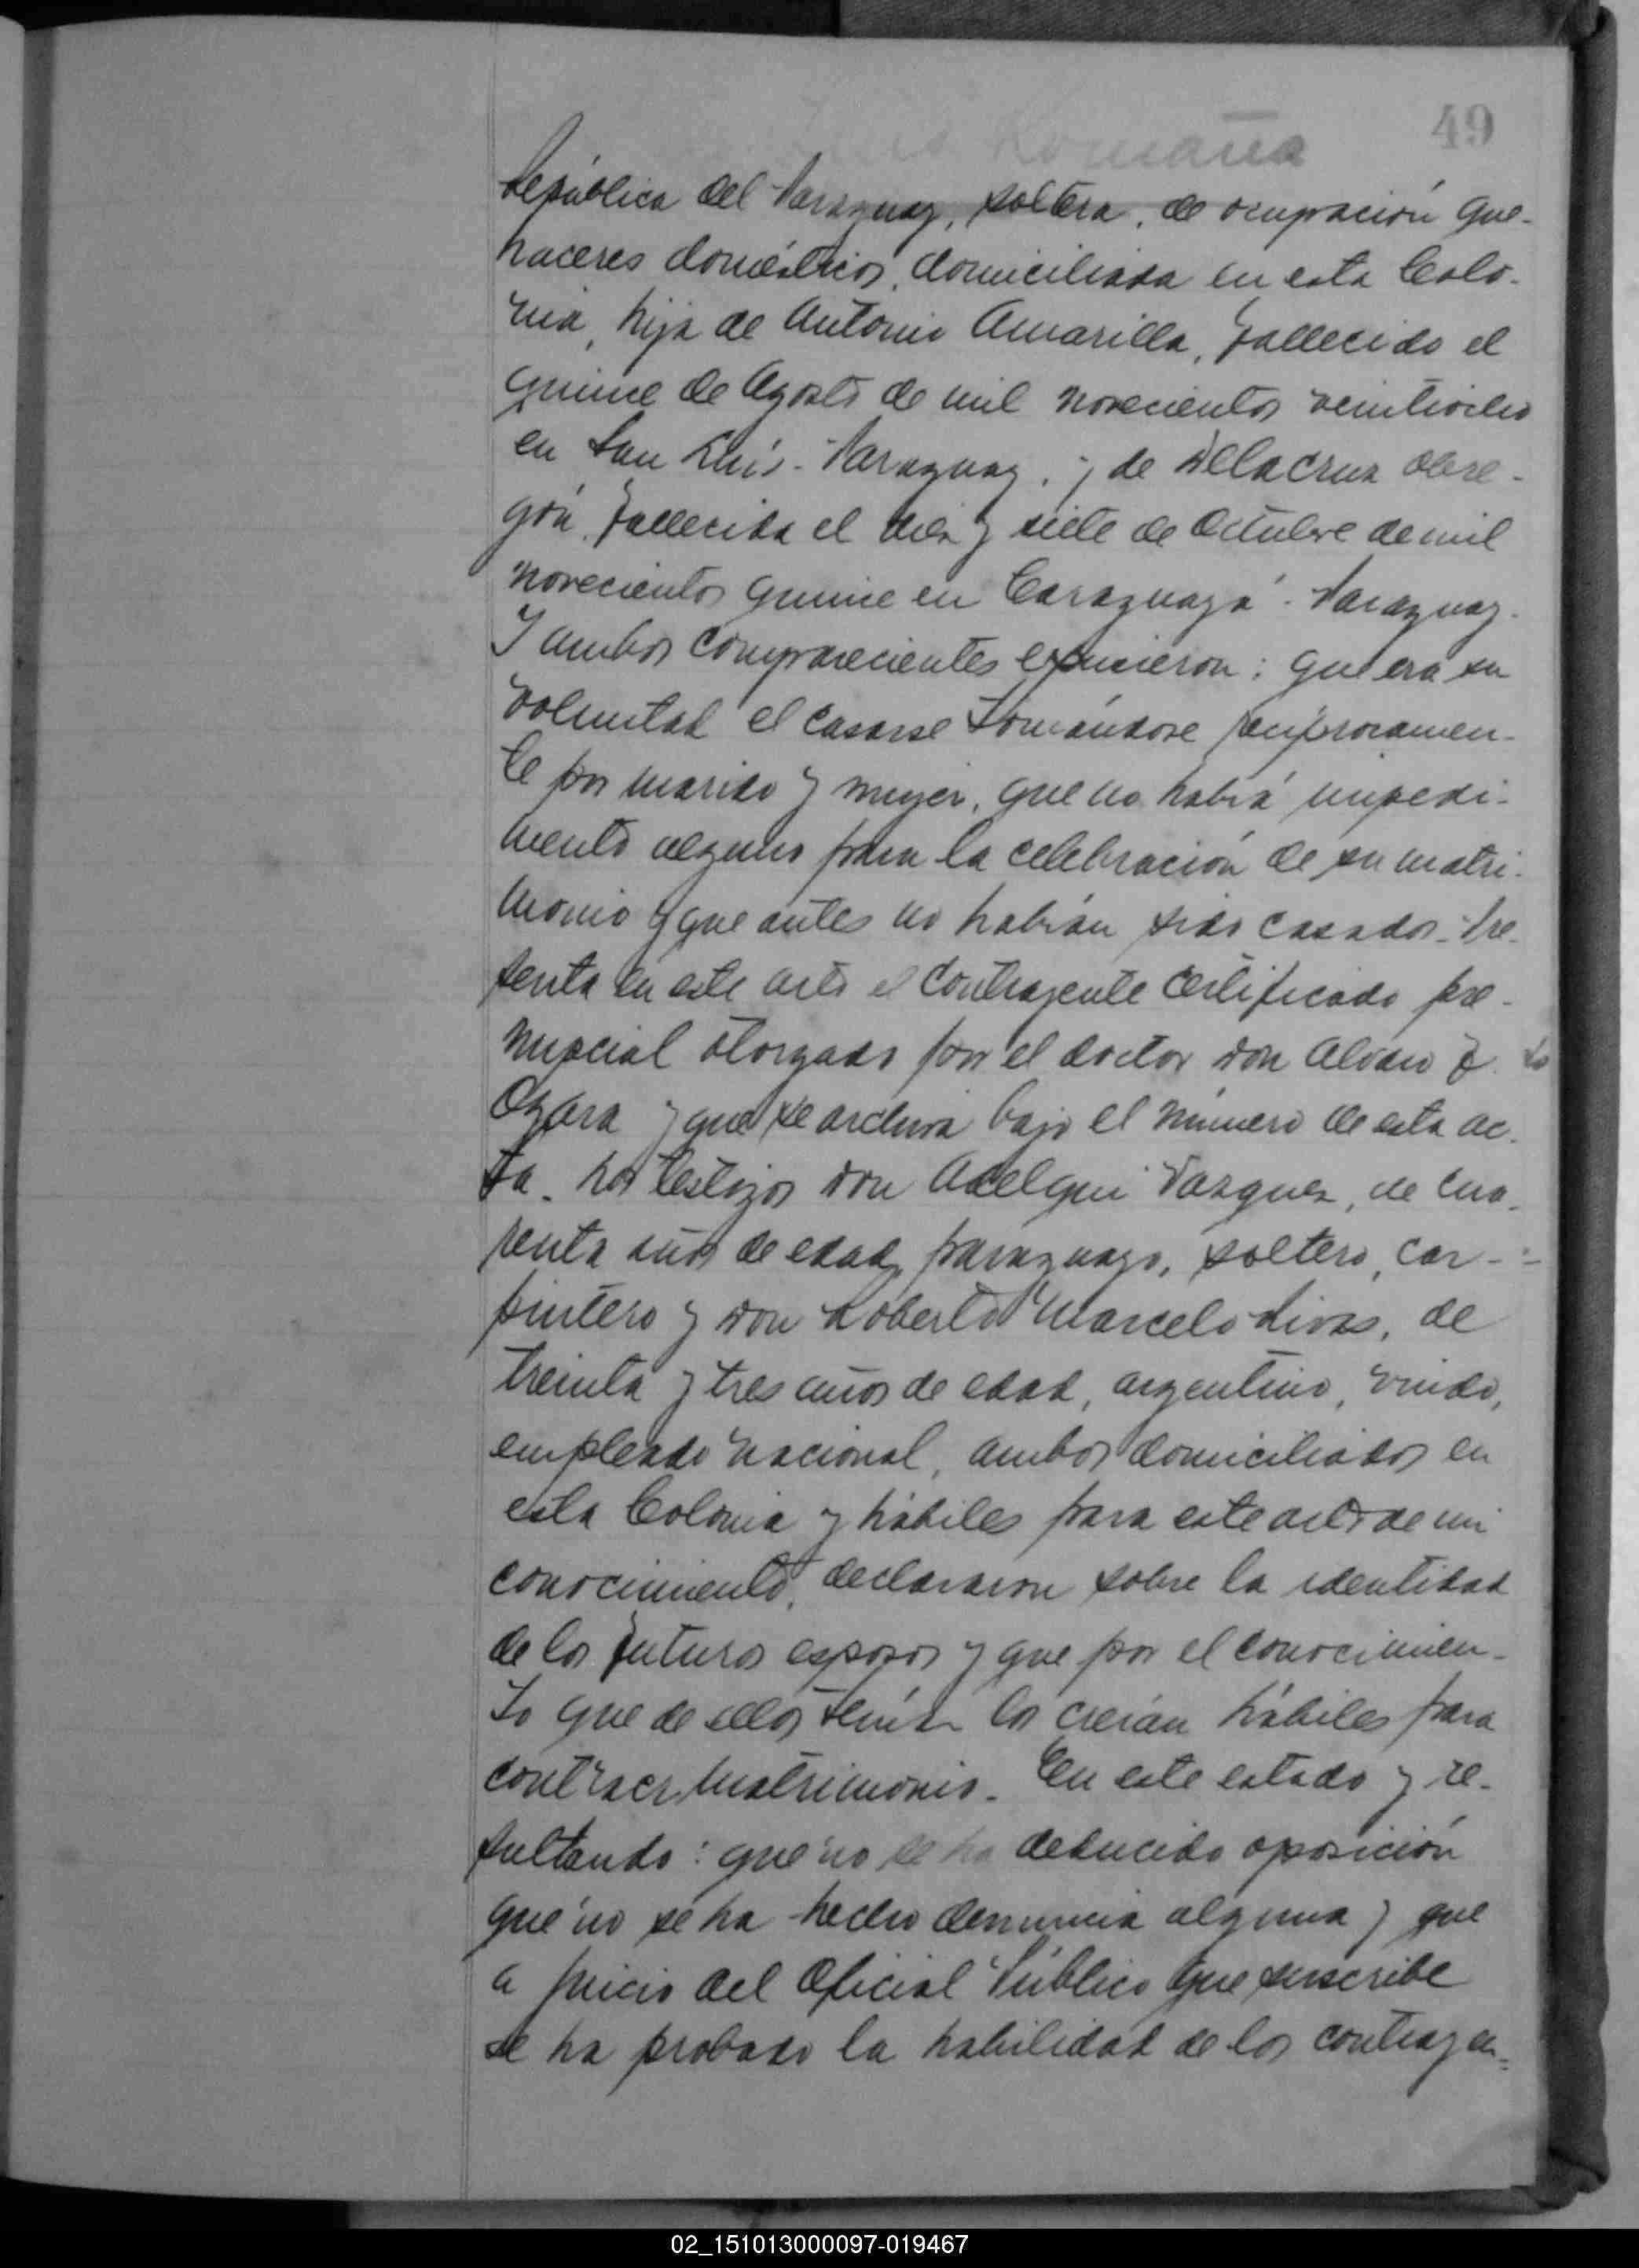 49
Romaña
República del Paraguay, soltera, de ocupación que-
haceres domésticos, domiciliada en esta Colo-
nia, hija de Antonio Amarilla, fallecido el
quince de Agosto de mil novecientos veintiocho
en San Luis - Paraguay, y de Delacruz Obre-
gón, fallecida el diez y siete de Octubre de mil
novecientos quince en Caraguayá - Paraguay.
Y ambos comparecientes expusieron: que era su
voluntad el casarse tomándose reciprocamen-
te por marido y mujer, que no había impedi-
mento alguno para la celebración de su matri-
monio y que antes no habían sido casados. Pre-
senta en este acto el contrayente certificado pre-
nupcial otorgado por el doctor don Alvaro
y que se archiva bajo el número de esta ac-
ta. Los testigos don Adelqui Vazquez, de cua-
renta años de edad, paraguayo, soltero, car-
pintero y don Roberto Marcelo Rivas, de
treinta y tres años de edad, argentino, viudo,
empleado nacional, ambos domiciliados en
esta Colonia y hábiles para este acto de mi
conocimiento, declararon sobre la identidad
de los futuros esposos y que por el conocimien-
to que de ellos tenían los creían hábiles para
contraer matrimonio. En este estado y re-
sultando: que no se ha deducido oposición
que no se ha hecho denuncia alguna y que
a juicio del Oficial Público que suscribe
se ha probado la habilidad de los contrayen-
02_151013000097-019467